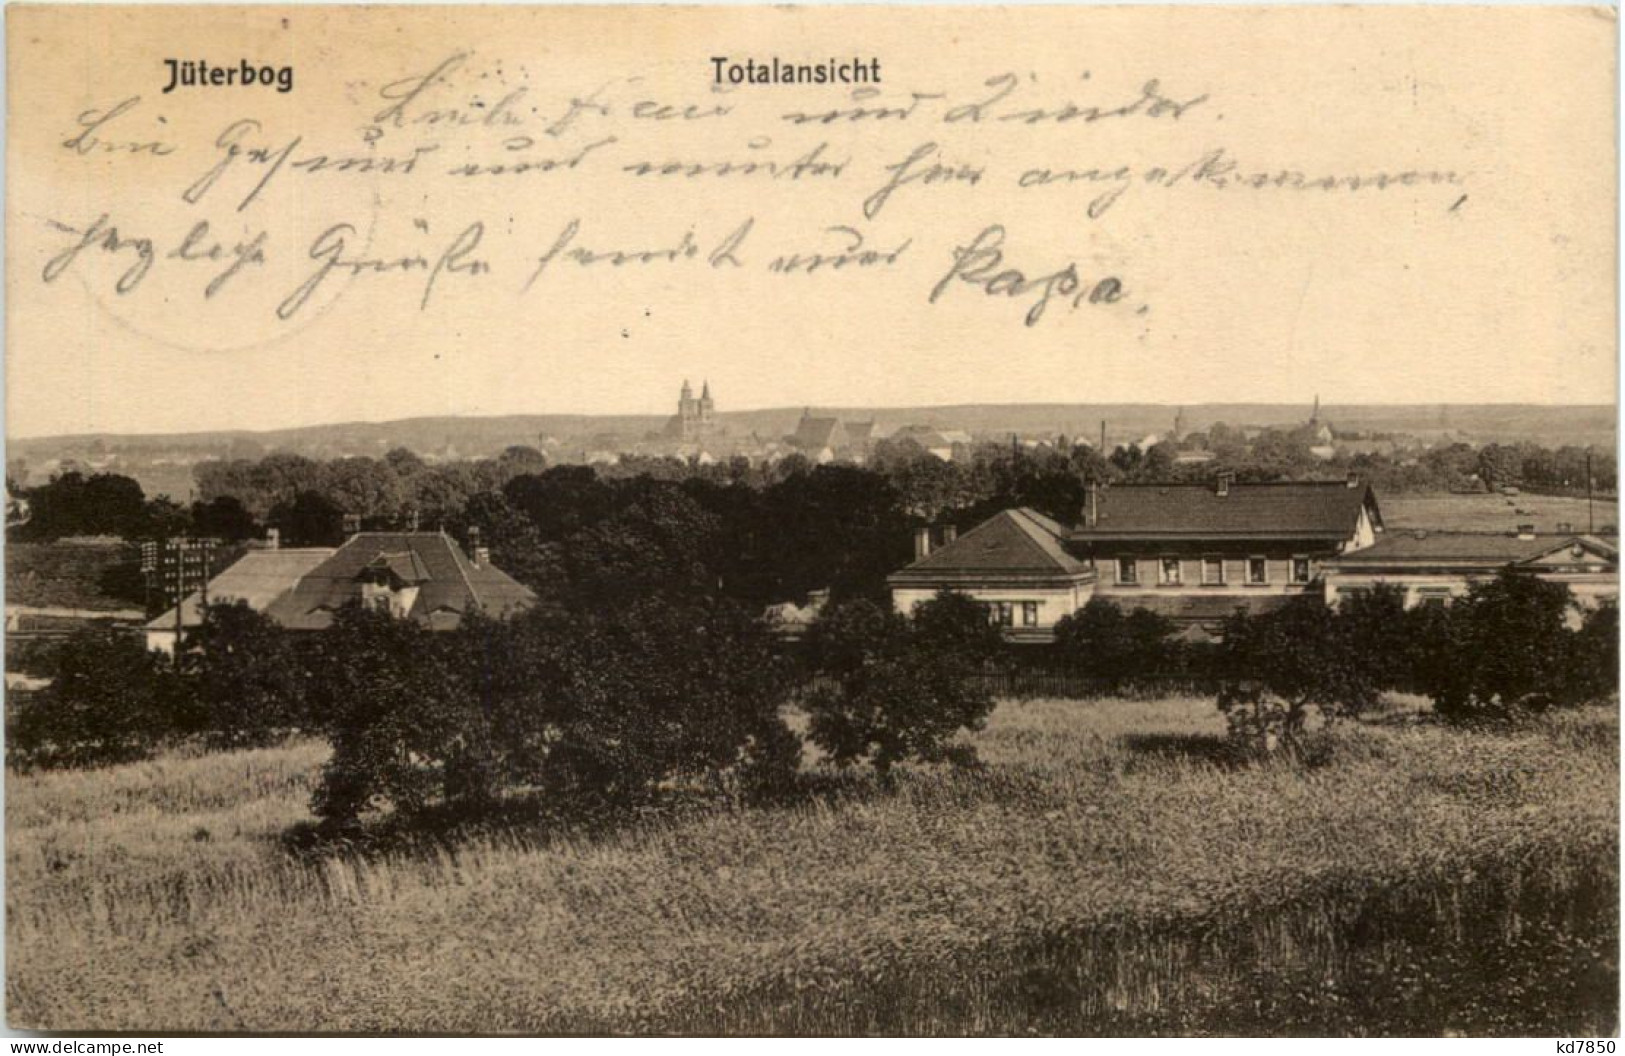 Jüterbog
Totalansicht
Liebe Frau und Kinder.
Bin Gesund und munter hier angekommen,
herzliche Grüße sendet euer Papa.
www.delcampe.net
kd7850